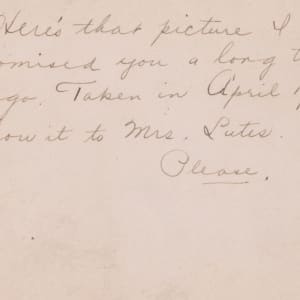 Here's that picture I
omised you a long t
go. Taken in April
ow it to Mrs. Lutes.
Please.